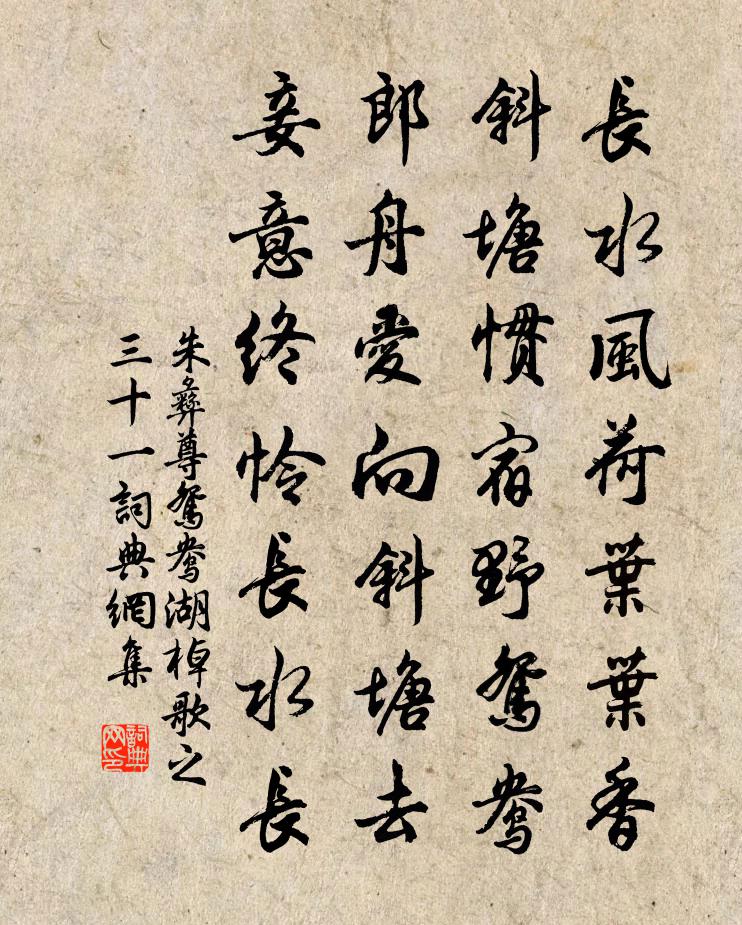 長水風荷葉葉香
斜塘慣宿野鴛鴦
郎舟愛向斜塘去
妾意終憐長水長
朱彝尊鴛鴦湖棹歌之
三十一詞典網集
詞典
网印